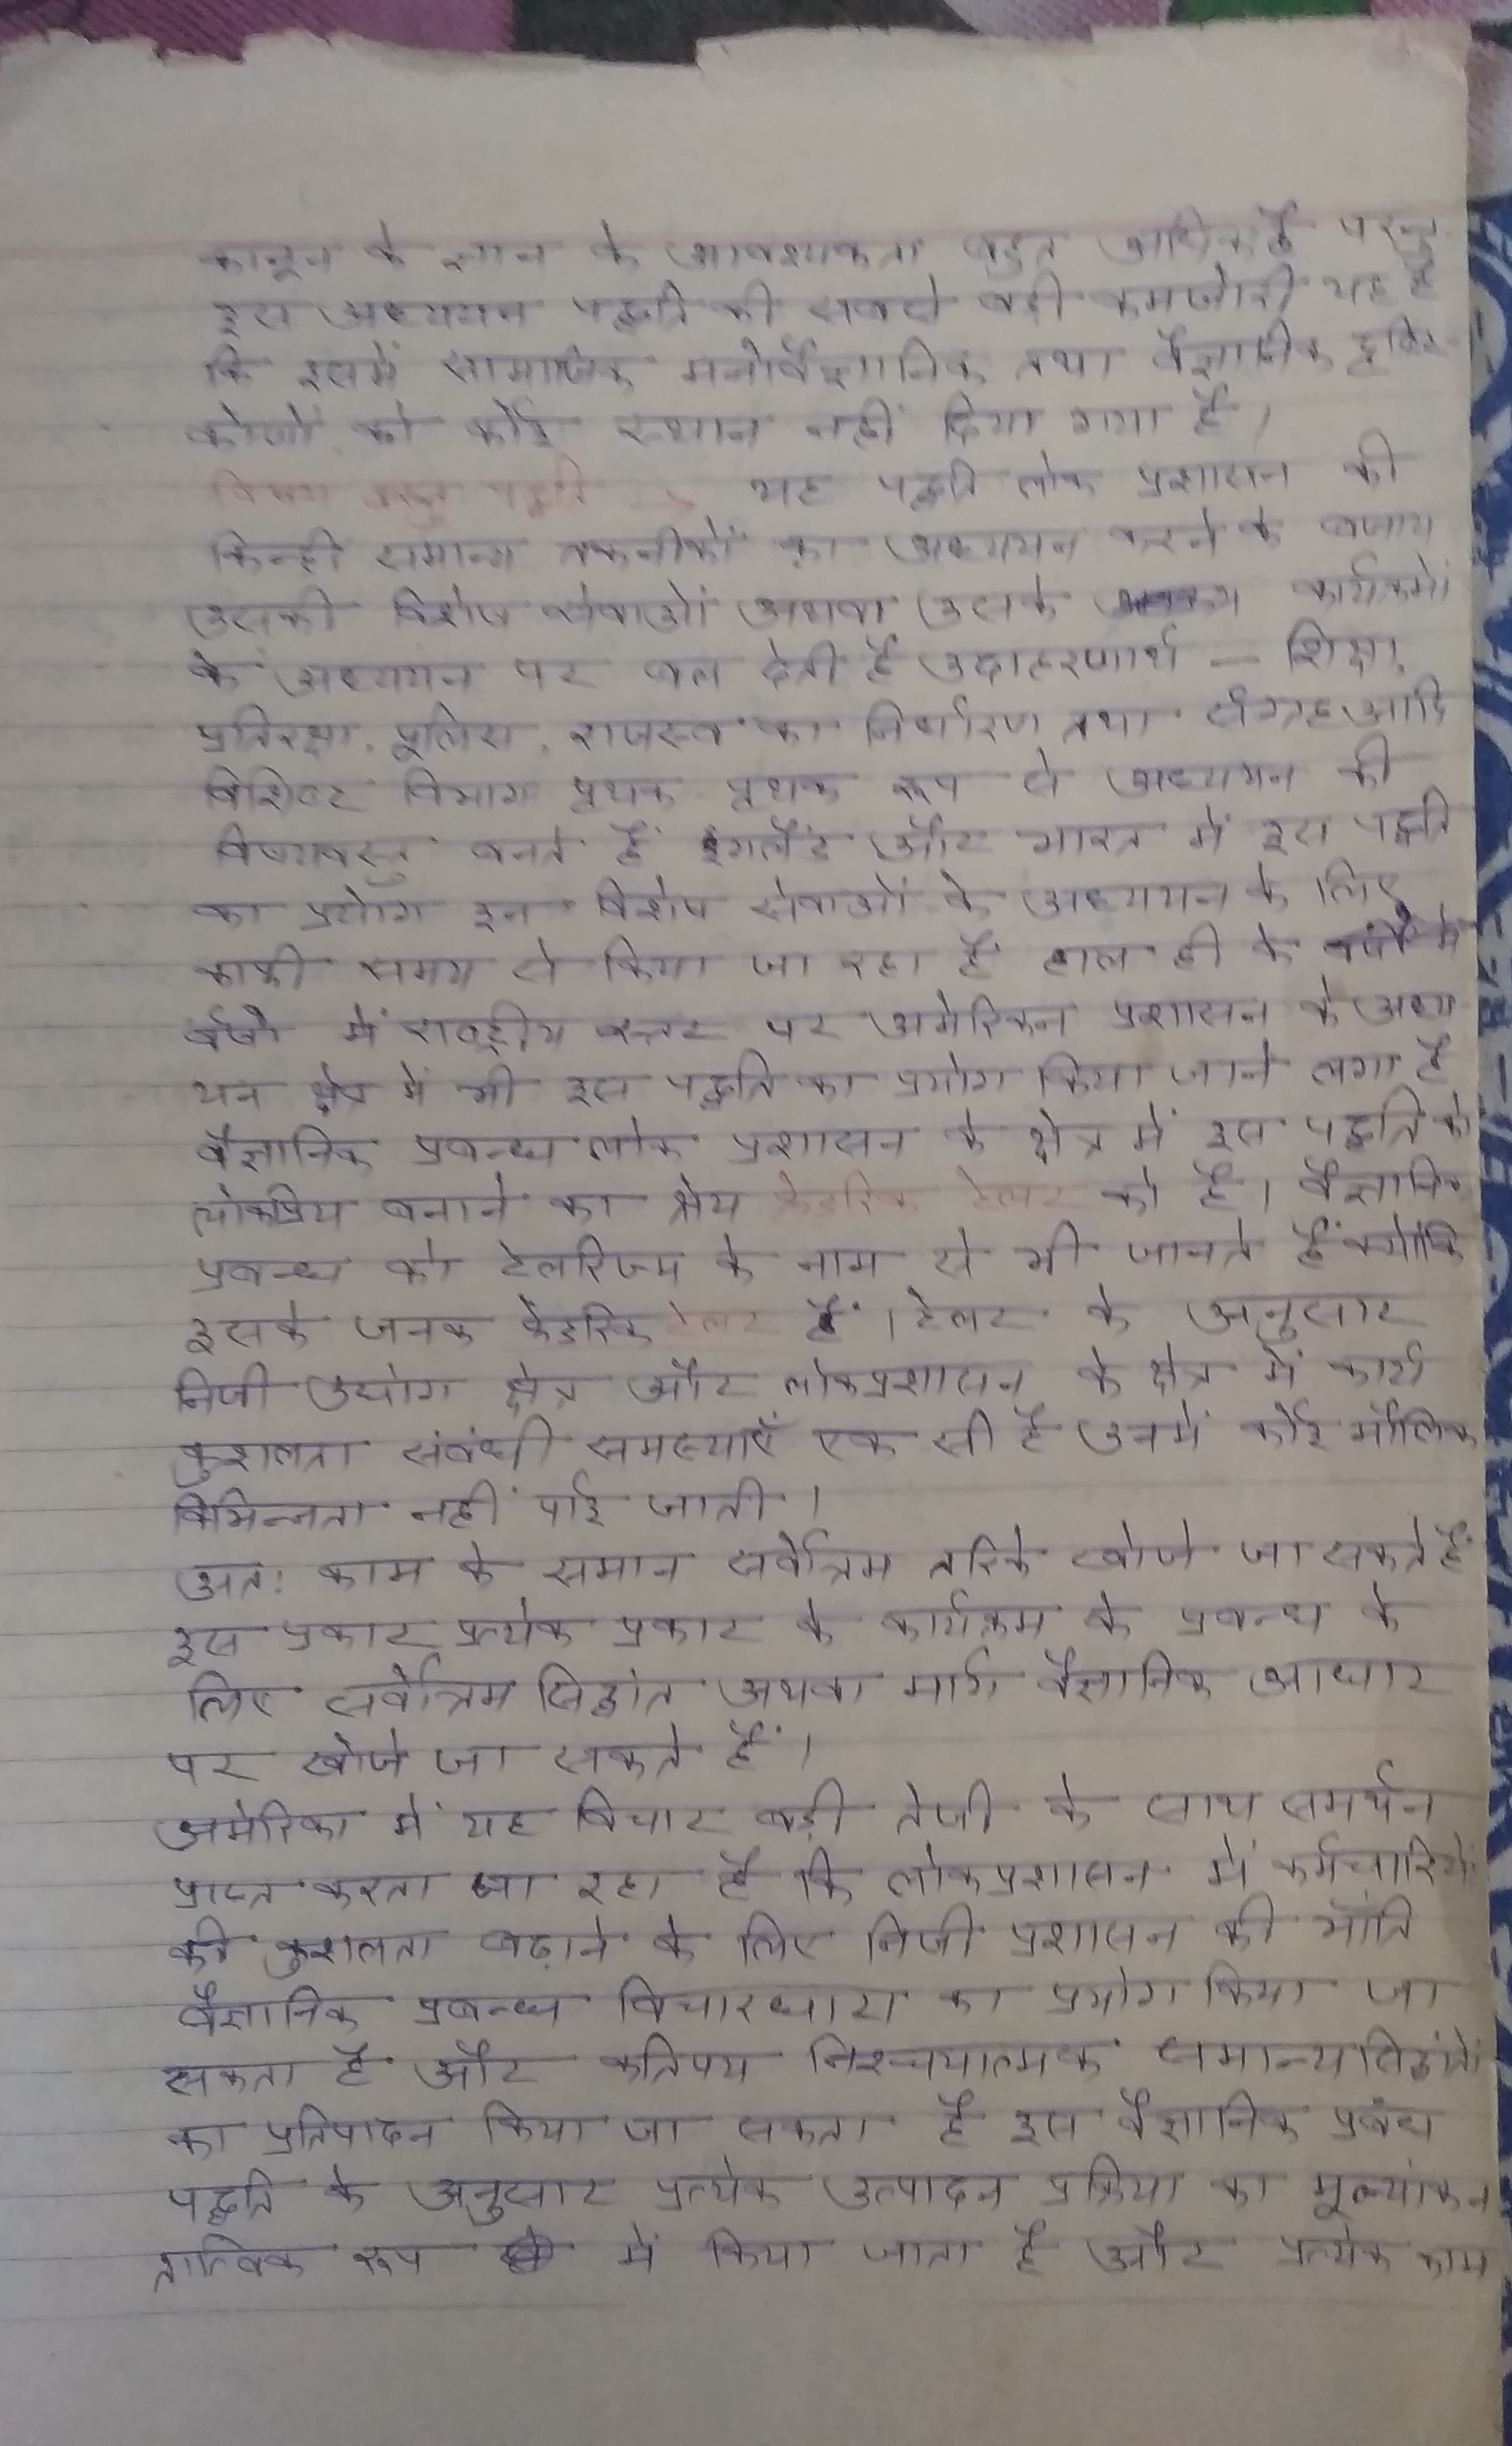 कानून के ज्ञान के आवश्यकता बहुत अधिक है परन्तु
इस अध्ययन पद्धति की सबसे बडी कमजोरी यह है
कि इसमें सामाजिक मनोवैज्ञानिक तथा वैज्ञानिक दृष्टि-
कोणों को कोई स्थान नहीं दिया गया है।
विषय वस्तु पद्धति → यह पद्धति लोक प्रशासन की
किन्ही समान्य तकनीकों का अध्ययन करने के बजाय
उसकी विशेष सेवाओं अथवा उसके कार्यक्रमों
के अध्ययन पर बल देती है उदाहरणार्थ — शिक्षा,
प्रतिरक्षा, पूलिस, राजस्व का निर्धारण तथा संग्रह आदि
विशिष्ट विभाग पृथक-पृथक रूप से अध्ययन की
विषयवस्तु बनते हैं इंगलैंड और भारत में इस पद्धति
का प्रयोग इन विशेष सेवाओं के अध्ययन के लिए
काफी समय से किया जा रहा है हाल ही के
वर्षो में राष्ट्रीय स्तर पर अमेरिकन प्रशासन के अध्य
यन क्षेत्र में भी इस पद्धति का प्रयोग किया जाने लगा है
वैज्ञानिक प्रबन्ध लोक प्रशासन के क्षेत्र में इस पद्धति को
लोकप्रिय बनाने का श्रेय फ्रेडरिक टेलर को है। वैज्ञानिक
प्रबन्ध को टेलरिज्म के नाम से भी जानते हैं क्योंकि
इसके जनक फ्रेडरिक टेलर हैं। टेलर के अनुसार
निजी उद्योग क्षेत्र और लोकप्रशासन के क्षेत्र में कार्य
कुशलता संबंधी समस्याएँ एक सी है उनमें कोई मौलिक
विभिन्नता नहीं पाई जाती।
अतः काम के समान सर्वोत्तम तरिके खोजे जा सकते हैं
इस प्रकार प्रत्येक प्रकार के कार्यक्रम के प्रबन्ध के
लिए सर्वोत्तम सिद्धांत अथवा मार्ग वैज्ञानिक आधार
पर खोजे जा सकते हैं।
अमेरिका में यह विचार बड़ी तेजी के साथ समर्थन
प्राप्त करता जा रहा है कि लोकप्रशासन में कर्मचारियों
की कुशलता बढ़ाने के लिए निजी प्रशासन की भाँति
वैज्ञानिक प्रबन्ध विचारधारा का प्रयोग किया जा
सकता है और कतिपय निश्चयात्मक समान्य सिद्धांतों
का प्रतिपादन किया जा सकता है इस वैज्ञानिक प्रबंध
पद्धति के अनुसार प्रत्येक उत्पादन प्रक्रिया का मूल्यांकन
तात्विक रूप में किया जाता है और प्रत्येक काम